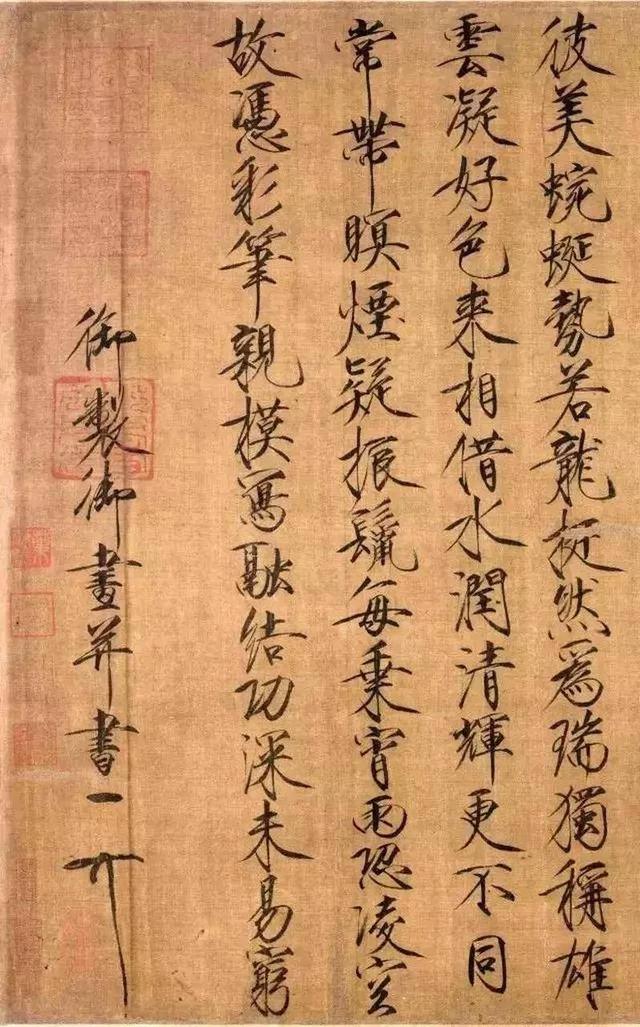 彼美蜿蜒勢若龍挺然爲瑞獨稱雄
雲凝好色來相借水潤清輝更不同
常帶瞑煙疑振鬣每乘宵雨恐凌空
故憑彩筆親模寫融結功深未易窮
御製御畫并書